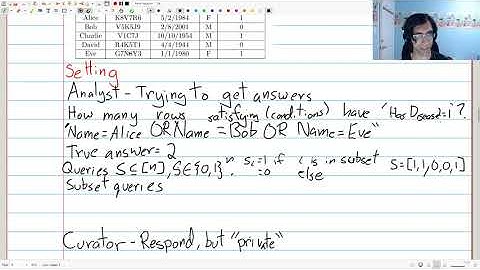 Alice K8V7R6 5/2/1984 F 1
Bob V5K5J9 2/8/2001 M 0
Charlie V1C7J 10/10/1954 M 1
David R4K5T1 4/4/1944 M 0
Eve G7N8Y3 1/1/1980 F 1
Setting
Analyst - Trying to get answers
How many rows satisfying (conditions) have "Has Disease=1"?
"Name=Alice OR Name = Bob OR Name=Eve"
True answer = 2
Queries S⊆[n], S∈{0,1}ⁿ. Sᵢ=1 if i is in subset S=[1,1,0,0,1]
=0 else
Subset queries
Curator - Respond, but "private"